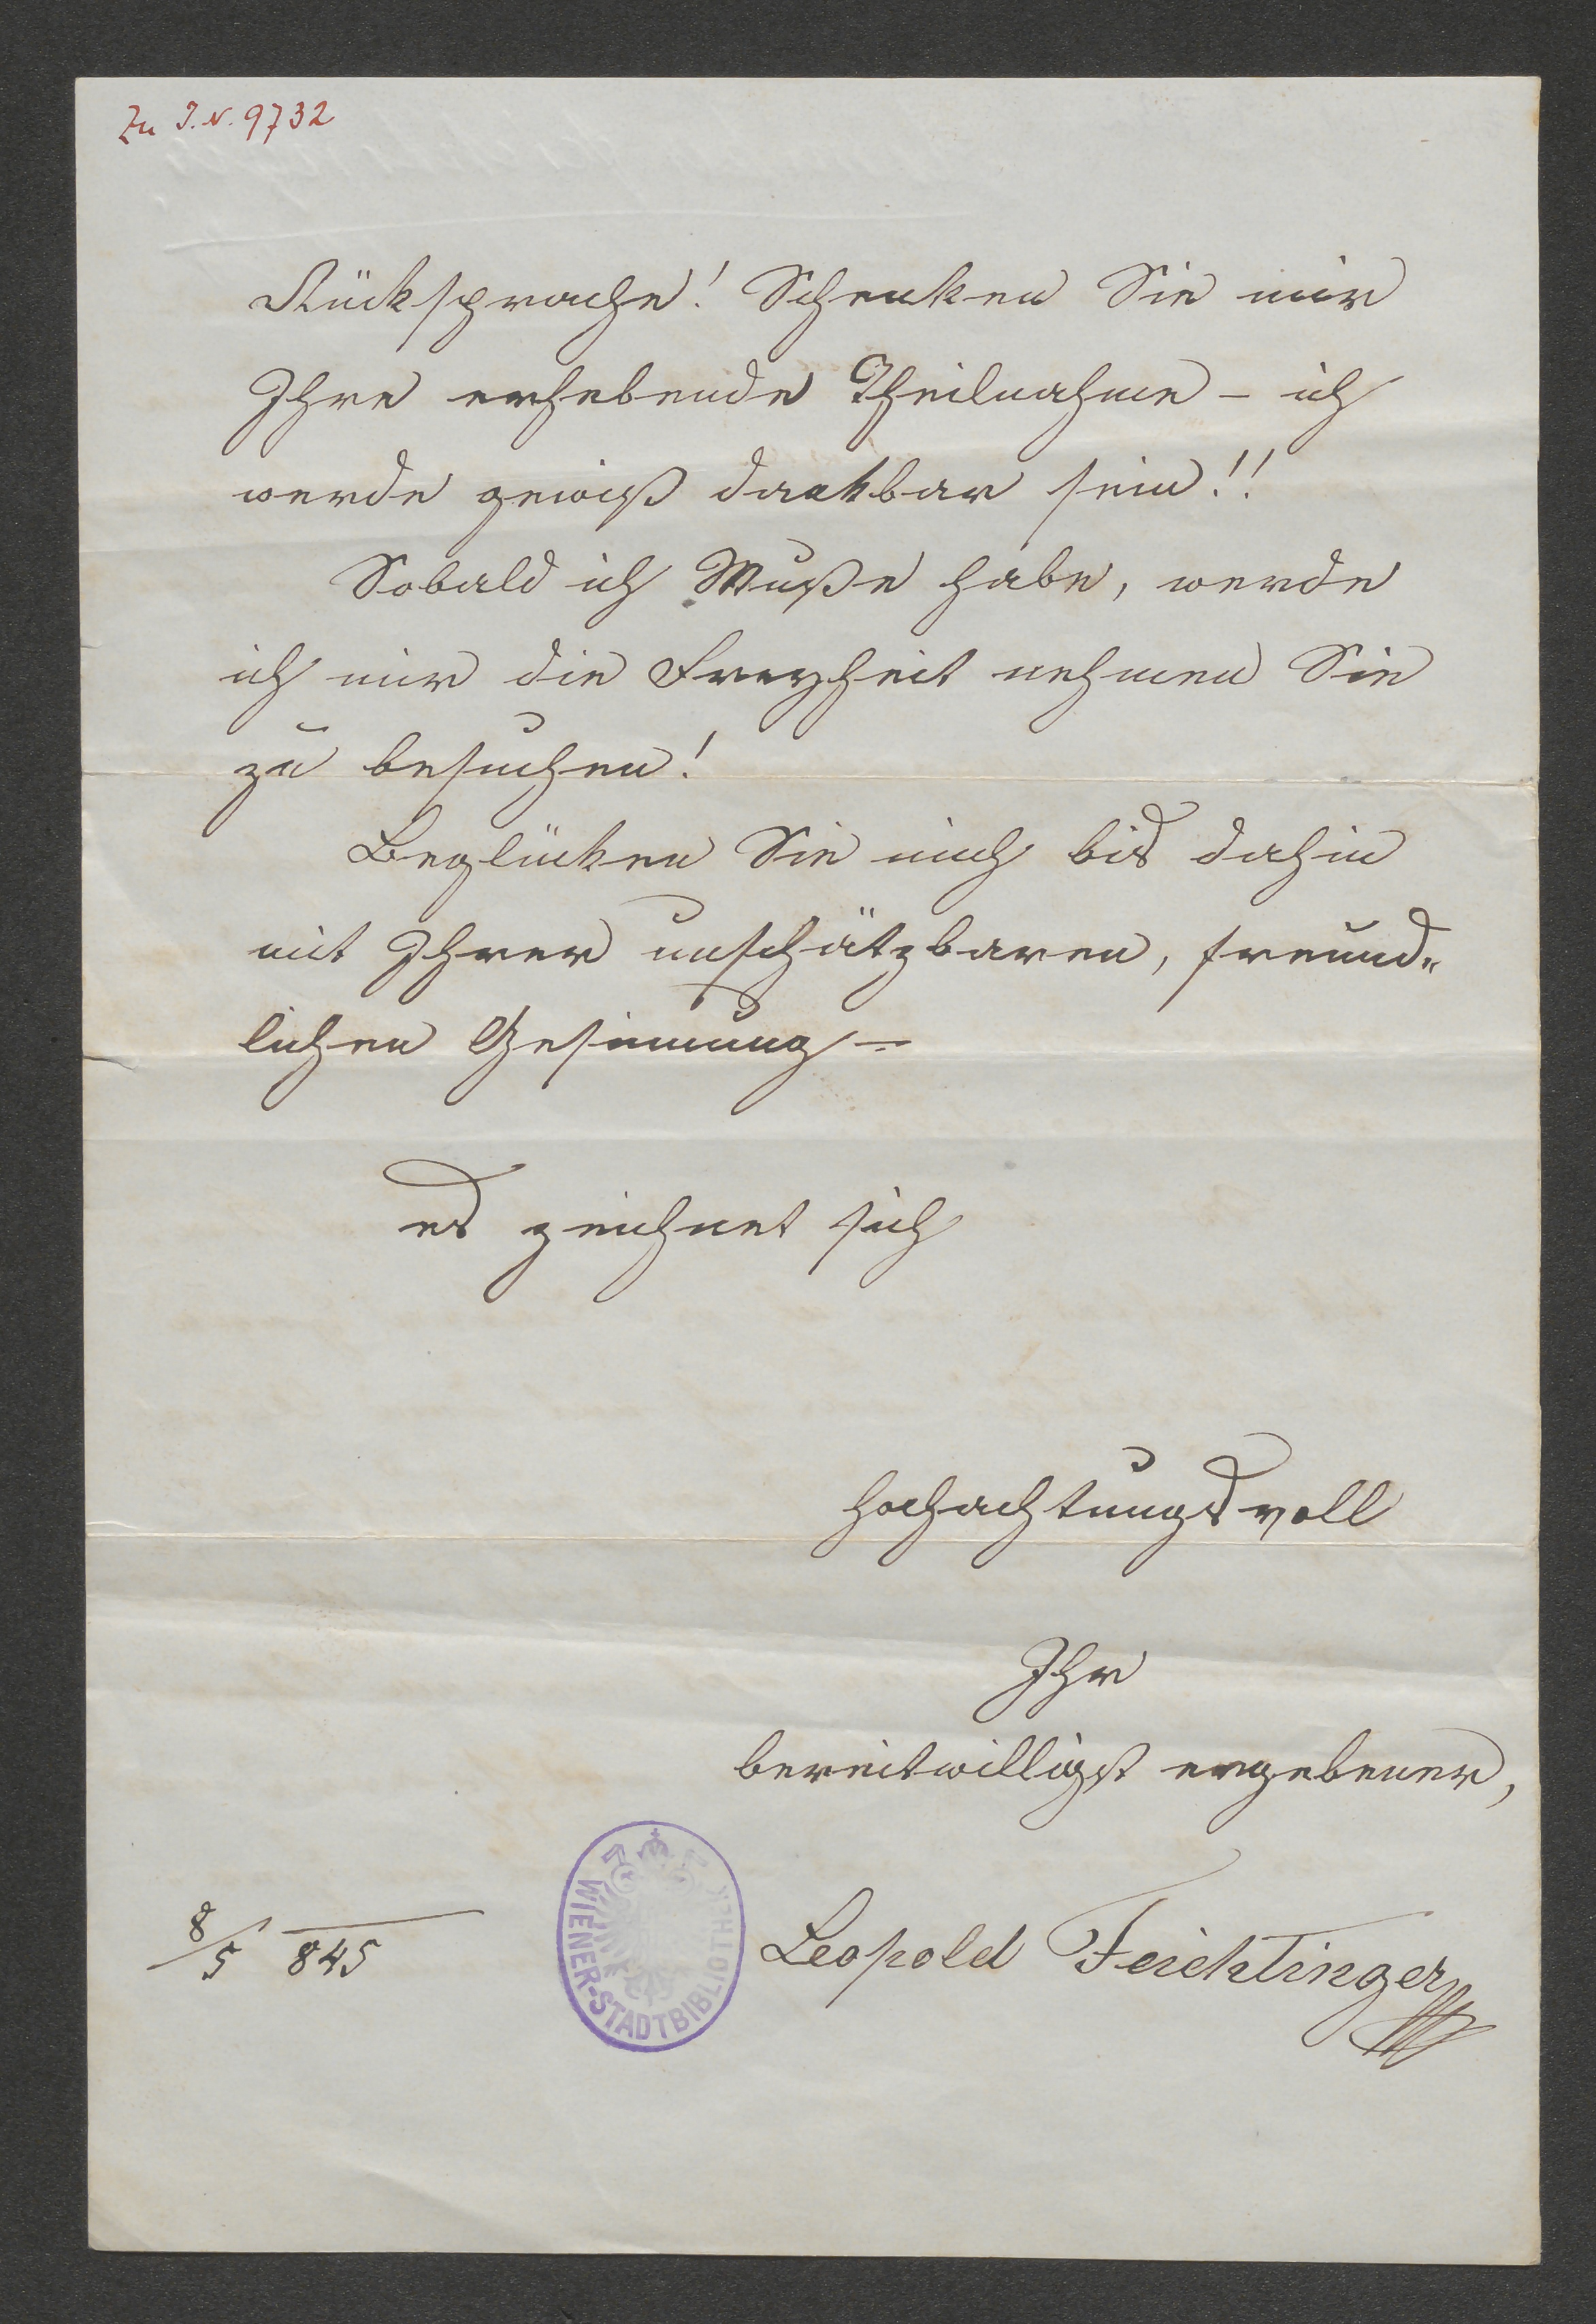 Zu I.N. 9732
Rücksprache! Schenken Sie mir
Ihre erhebende Theilnahme - ich
werde gewiß dankbar sein!!
Sobald ich Muße habe, werde
ich mir die Freyheit nehmen Sie
zu besuchen!
Beglücken Sie mich bis dahin
mit Ihrer unschätzbaren, freund„
lichen Gesinnung -
es zeichnet sich
hochachtungsvoll
Ihr
bereitwilligst ergebener,
Leopold Feichtinger
8/5 845
WIENER-STADTBIBLIOTHEK